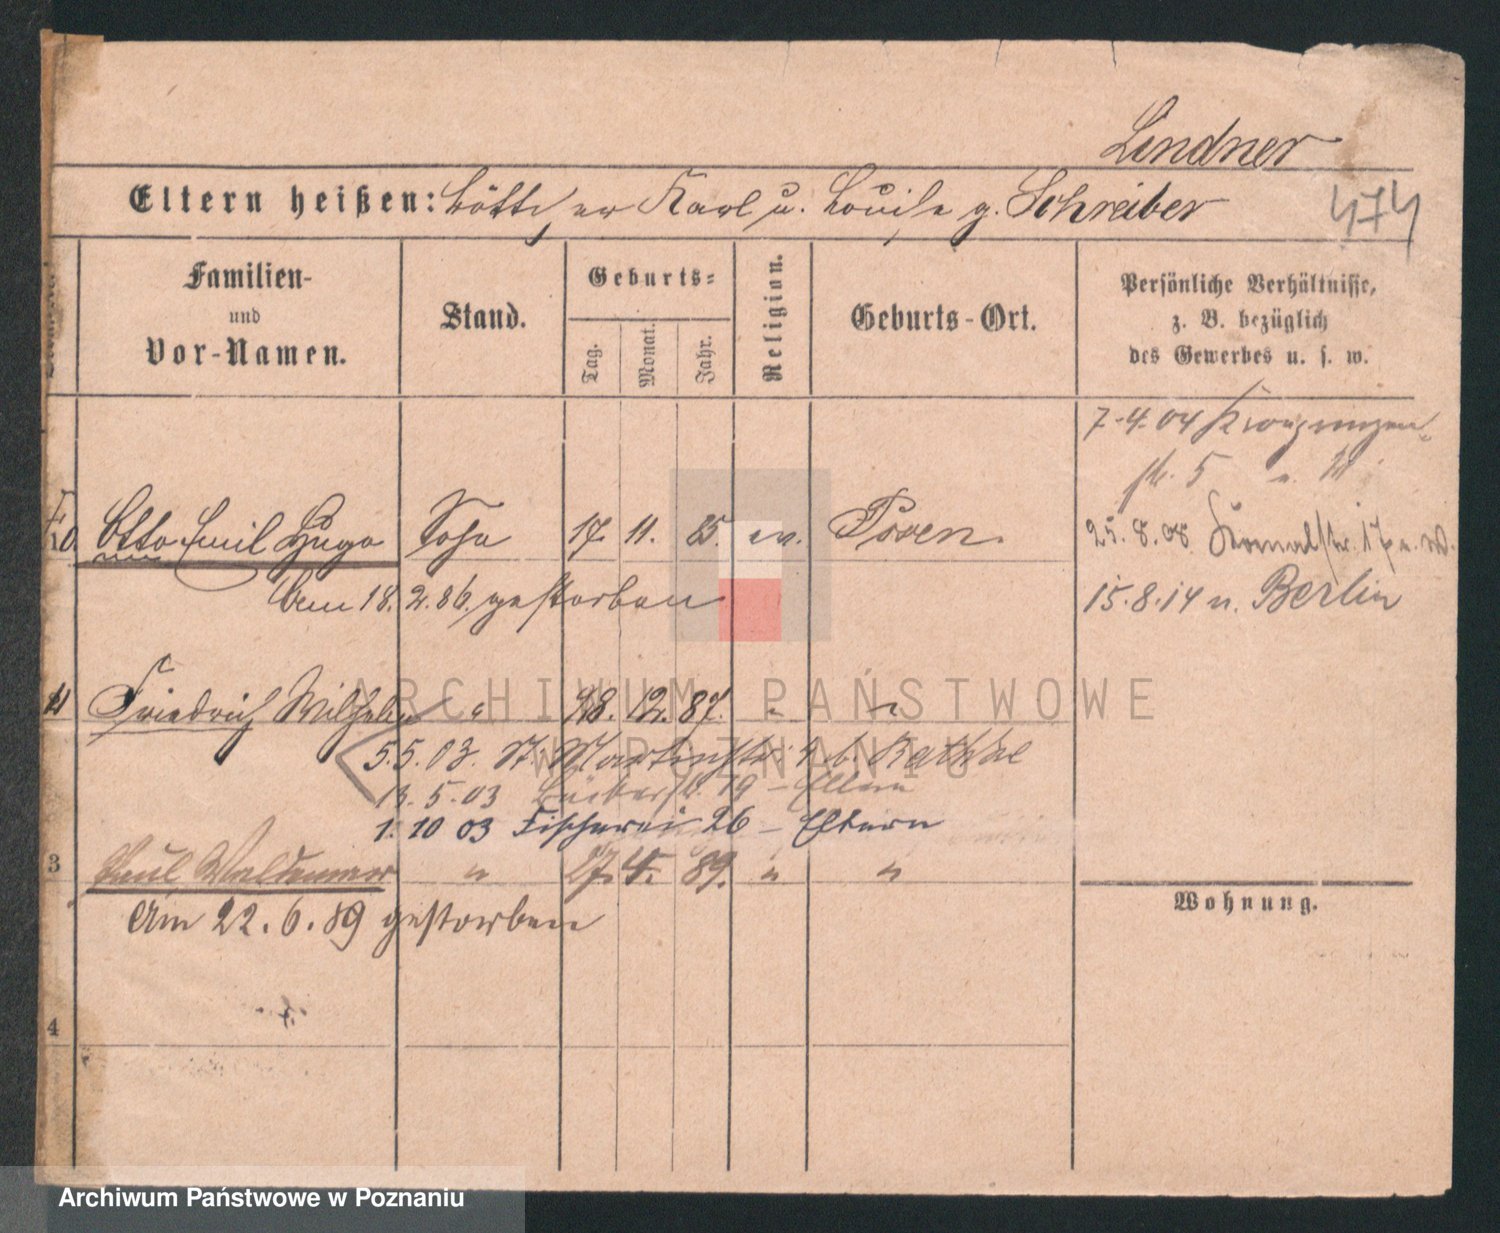 Lindner
Eltern heißen: Böttcher Karl u. Louise g. Schreiber
474
Familien- und Vor-Namen.
Stand.
Geburts-
Tag.
Monat.
Jahr.
Religion.
Geburts-Ort.
Persönliche Verhältnisse,
z. B. bezüglich
des Gewerbes u. s. w.
7.4.04
str. 5
Otto Emil Hugo Sohn 17. 11. 85. ev. Posen.
25.8.08 17 n.
Am 18. 2. 86. gestorben
15.8.14 n. Berlin
Friedrich Wilhelm " 28. 12. 87. " "
5.5.03. St. Martinstr. 4 b. Rathke
13.5.03 19 – Eltern
1. 10 03 Fischerei 26 – Eltern
3 Paul Waldemar " 27. 4. 89. " "
Am 22.6.89 gestorben
Wohnung.
4
ARCHIWUM PAŃSTWOWE
W POZNANIU
Archiwum Państwowe w Poznaniu